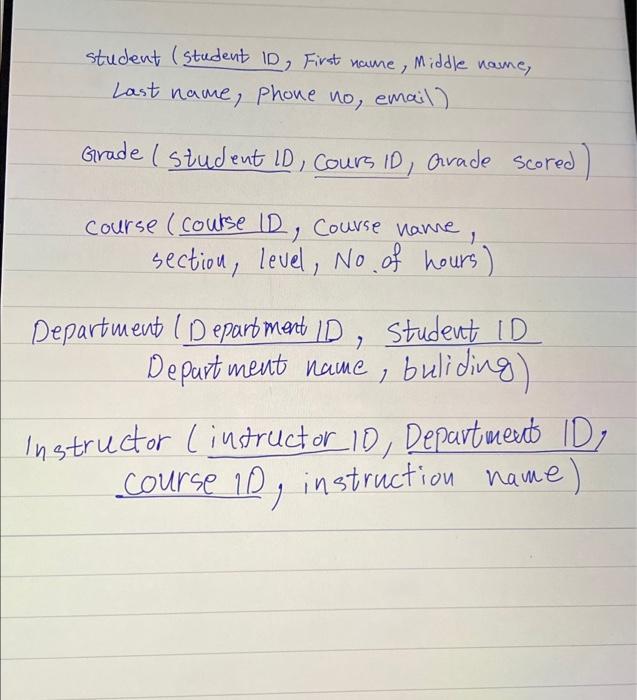 student (student ID, First name, Middle name,
Last name, phone no, email)
Grade (student ID, Cours ID, Grade scored)
course (course ID, Course name,
section, level, No. of hours)
Department (Department ID, Student ID
Department name, buliding)
Instructor (instructor ID, Departments ID,
course ID, instruction name)